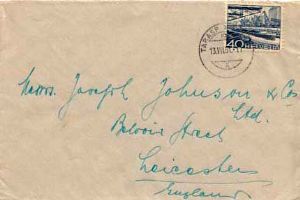 TARASP
13.VII.
40
HELVETIA
Messrs. Joseph Johnson & Cos.
Ltd.
Belvoir Street
Leicester
England